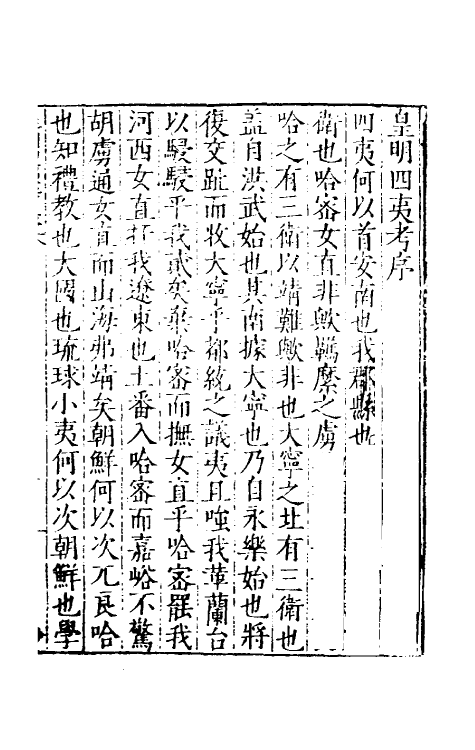 皇明四夷考序
四夷何以首安南也我郡縣也
衛也哈密女直非歟羈縻之虜
哈之有三衛以靖難歟非也大寧之北有三衛也
蓋自洪武始也其南據大寧也乃自永樂始也將
復交趾而牧大寧乎都統之議夷且嗤我葷蘭台
以駸駸乎我貳矣棄哈密而撫女直乎哈密罷我
河西女直扞我遼東也土番入哈密而嘉峪不驚
胡虜通女直而山海弗靖矣朝鮮何以次兀良哈
也知禮教也大國也琉球小夷何以次朝鮮也學